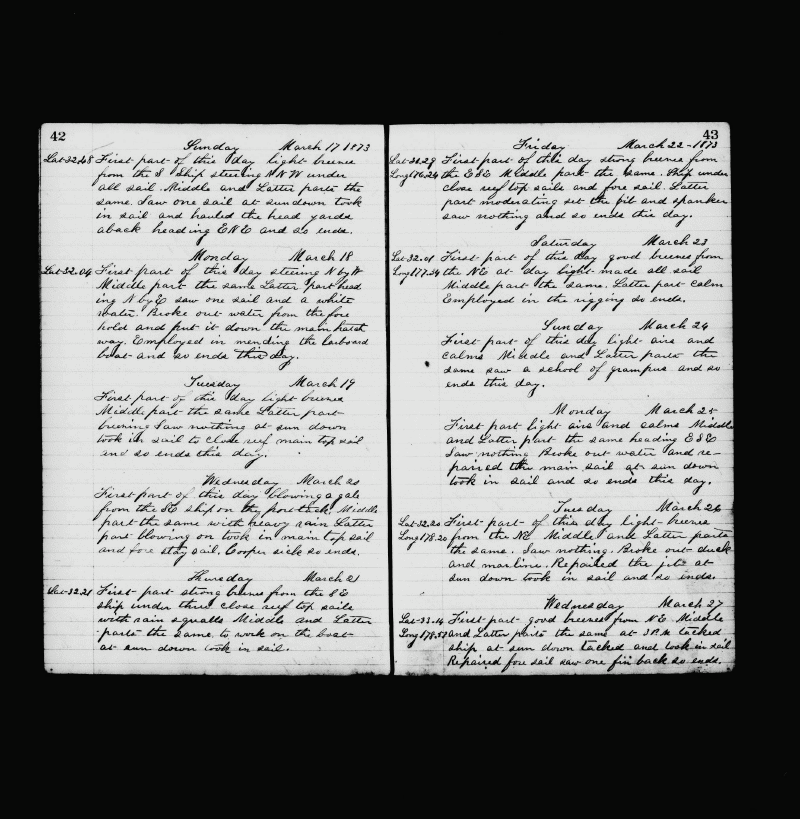 42
Sunday March 17 1873
Lat 32.48 First part of this day light breeses
from the S Ship steering N N W under
all sail. Middle and Latter parts the
same. Saw one sail at sundown took
in sail and hauled the head yards
aback heading ENE and so ends.
Monday March 18
Lat 32.04 First part of this day steering N by W
Middle part the same Latter part head
ing N by E saw one sail and a white
water. Broke out water from the fore
hold and put it down the main hatch
way. Employed in mending the larboard
boat and so ends this day.
Tuesday March 19
First part of this day light breeses
Middle part the same Latter part
breesing Saw nothing at sun down
took in sail to close reef main top sail
and so ends this day.
Wednesday March 20
First part of this day blowing a gale
from the SE ship on the port tack. Middle
part the same with heavy rain Latter
part blowing on took in main top sail
and fore stay sail. Cooper sick so ends.
Thursday March 21
Lat 32.21 First part strong breeses from the SE
ship under three close reef top sails
with rain squalls Middle and Latter
parts the same to work on the boat
at sun down took in sail.
43
Friday March 22 - 1873
Lat 31.29 First part of this day strong breeses from
Long 176.24 the ESE Middle part the same. Ship under
close reef top sails and fore sail. Latter
part moderating set the jib and spanker
saw nothing and so ends this day.
Saturday March 23
Lat 32.01 First part of this day good breeses from
Long 177.34 the NE at day light made all sail
Middle part the same. Latter part calm
Employed in the rigging so ends.
Sunday March 24
First part of this day light airs and
calms Middle and Latter parts the
same saw a school of grampus and so
ends this day.
Monday March 25
First part light airs and calms Middle
and Latter part the same heading ESE
Saw nothing Broke out water and re-
paired the main sail at sun down
took in sail and so ends this day.
Tuesday March 26
Lat 32.20 First part of this day light breeses
Long 178.20 from the NE Middle and Latter parts
the same. Saw nothing. Broke out duck
and marline. Repaired the jib at
sun down took in sail and so ends.
Wednesday March 27
Lat 33.14 First part good breeses from NE Middle
Long 178.57 and Latter parts the same at 3 P.M tacked
ship at sun down tacked and took in sail
Repaired fore sail saw one fin back so ends.